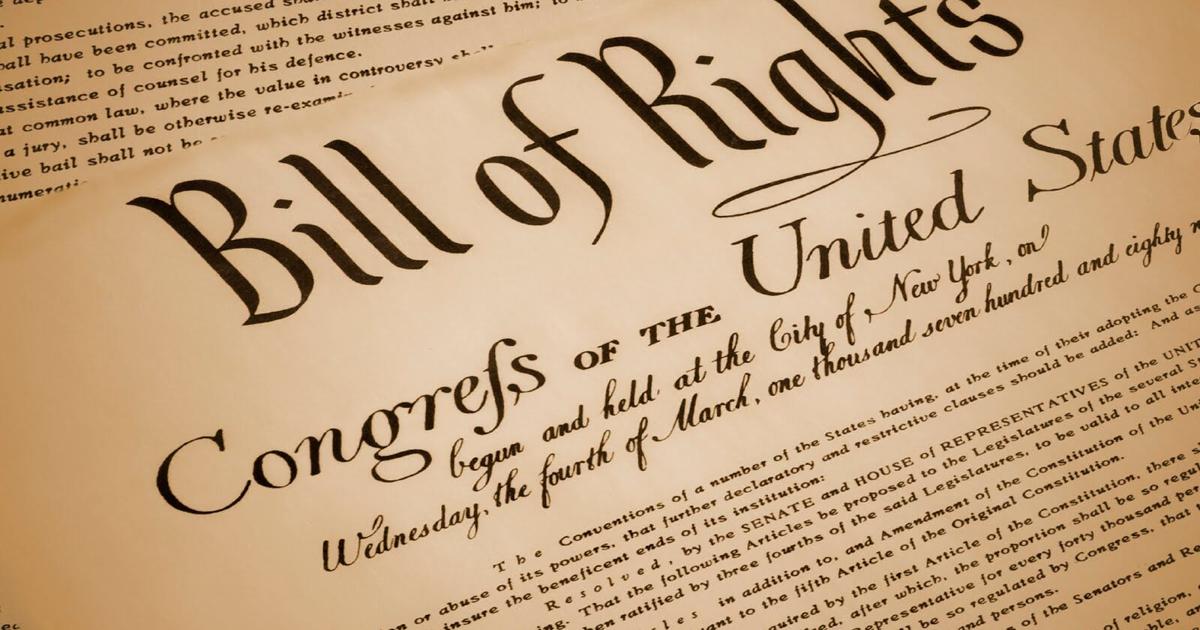 al prosecutions, the accused
hall have been committed, which district shall
sation; to be confronted with the witnesses against him; to
assistance of counsel for his defence.
at common law, where the value in controversy
a jury, shall be otherwise
ive bail shall not be
Bill of Rights
Congreſs OF THE United States
begun and held at the City of New York, on
Wednesday, the fourth of March, one thousand seven hundred and eighty
The Conventions of a number of the States having, at the time of their adopting the
or abuse of its powers, that further declaratory and restrictive clauses should be added: And as
insure the beneficent ends of its institution:
Resolved, by the SENATE and HOUSE of REPRESENTATIVES of the UNIT
ing. That the following Articles be proposed to the Legislatures of the several
hen ratified by three fourths of the said Legislatures, to be valid to all
les in addition to, and Amendment of the Constitution of the
ant to the fifth Article of the Original Constitution.
uired by the first Article of the Constitution, there
red, after which, the proportion shall be so
Representative for every forty thousand
ll be so regulated by Congress, that
and persons.
of the Senators and
of religion,